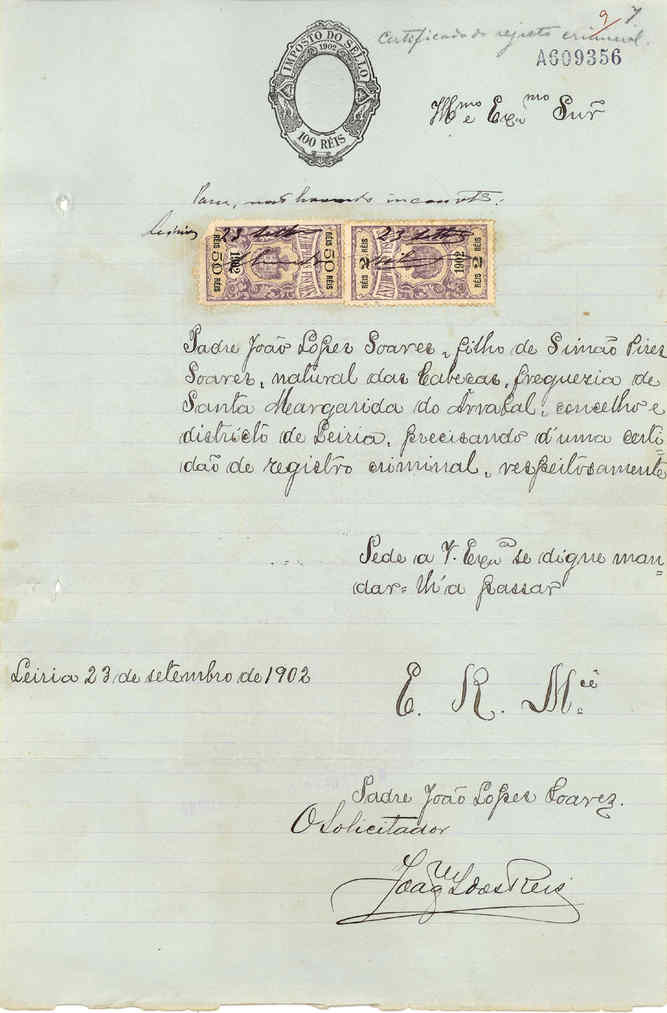 9 7
Certificado do registo criminal.
A609356
IMPOSTO DO SELLO
1902
100 RÉIS
Illmo e Exmo Snr
Passe, não havendo inconvte.
Leiria 23 Setbro 23 Setbro
50 RÉIS 1902 50 RÉIS 2 RÉIS 1902 2 RÉIS
Padre João Lopes Soares, filho de Simão Pires
Soares, natural das Cabeças, freguezia de
Santa Margarida do Arrabal, concelho e
districto de Leiria, precisando d'uma certi-
dão de registro criminal, respeitosamente
Pede a V. Exa se digne man-
dar-lh'a passar
Leiria 23 de setembro de 1902
E. R. Mcê
Padre João Lopes Soares.
O Solicitador
Joaqm L dos Reis